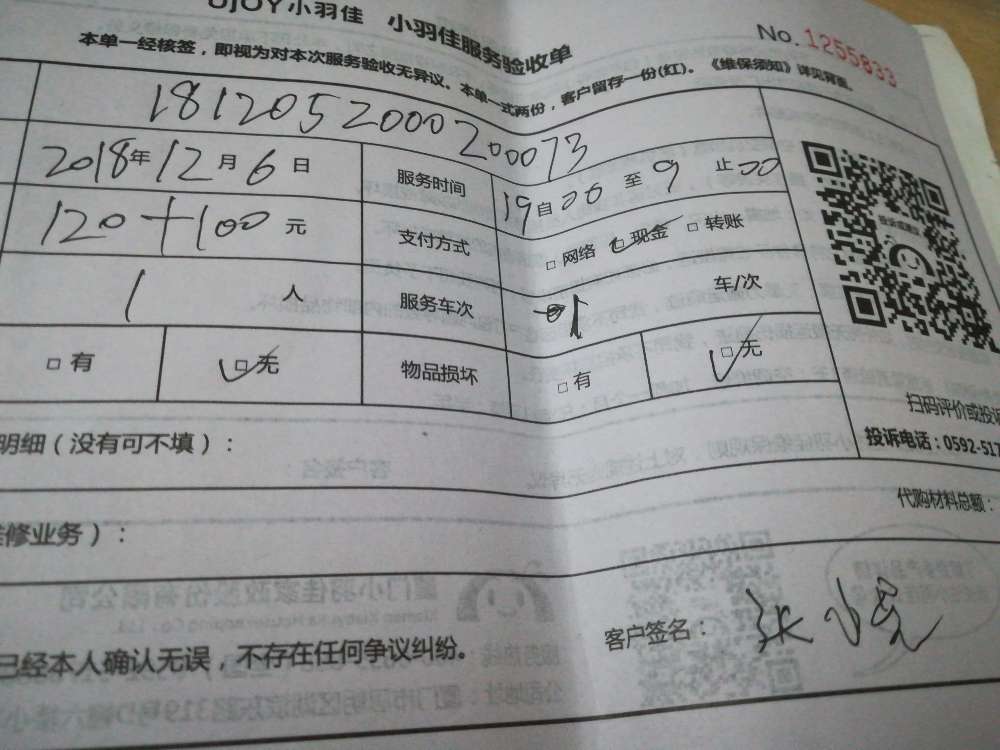 UJOY小羽佳 小羽佳服务验收单
No. 1255833
本单一经核签，即视为对本次服务验收无异议。本单一式两份，客户留存一份(红)。《维保须知》详见背面。
181205200020073
2018年12月6日 服务时间 19自00至9止00
120+100元 支付方式 □网络 ☑现金 □转账
1人 服务车次 1车/次
□有 ☑无 物品损坏 □有 ☑无
扫码评价或投诉
明细（没有可不填）：
投诉电话：0592-517
代购材料总额：
维修业务）：
客户签名：
已经本人确认无误，不存在任何争议纠纷。
客户签名：
厦门小羽佳家政股份有限公司